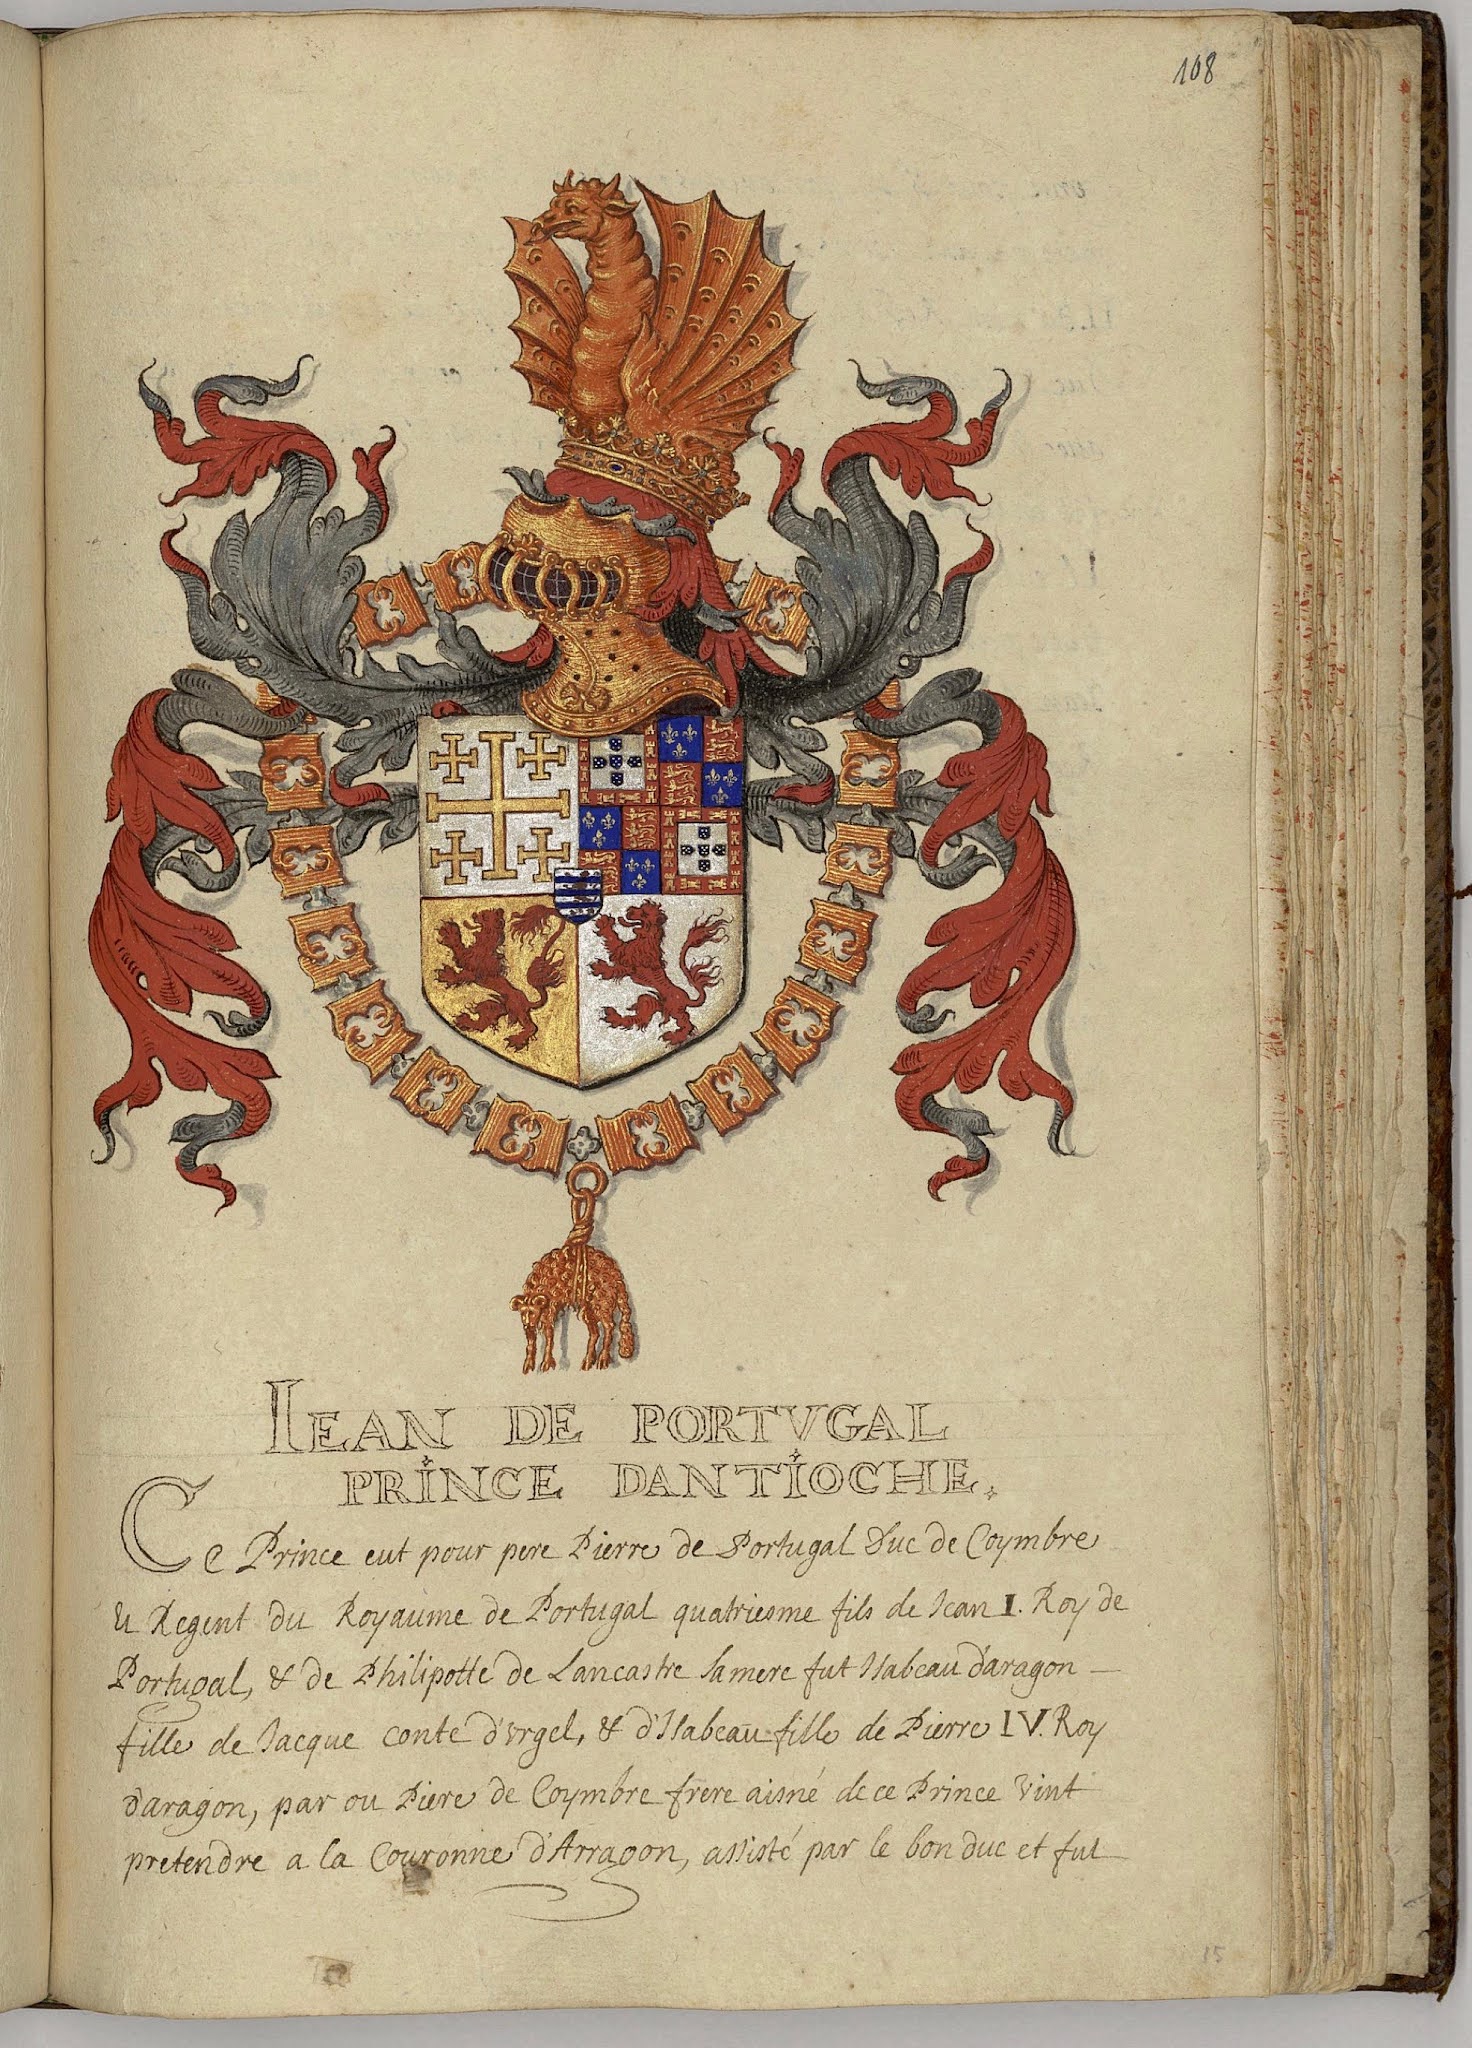 108
IEAN DE PORTVGAL
PRINCE DANTIOCHE.
Ce Prince eut pour pere Pierre de Portugal Duc de Coymbre
et Regent du Royaume de Portugal quatriesme fils de Jean I. Roy de
Portugal, & de Philipotte de Lancastre sa mere fut Isabeau d'aragon
fille de Jacque conte d'urgel, & d'Isabeau fille de Pierre IV. Roy
d'aragon, par ou Piere de Coymbre frere aisné de ce Prince vint
pretendre a la Couronne d'Arragon, assisté par le bon duc et fut
15